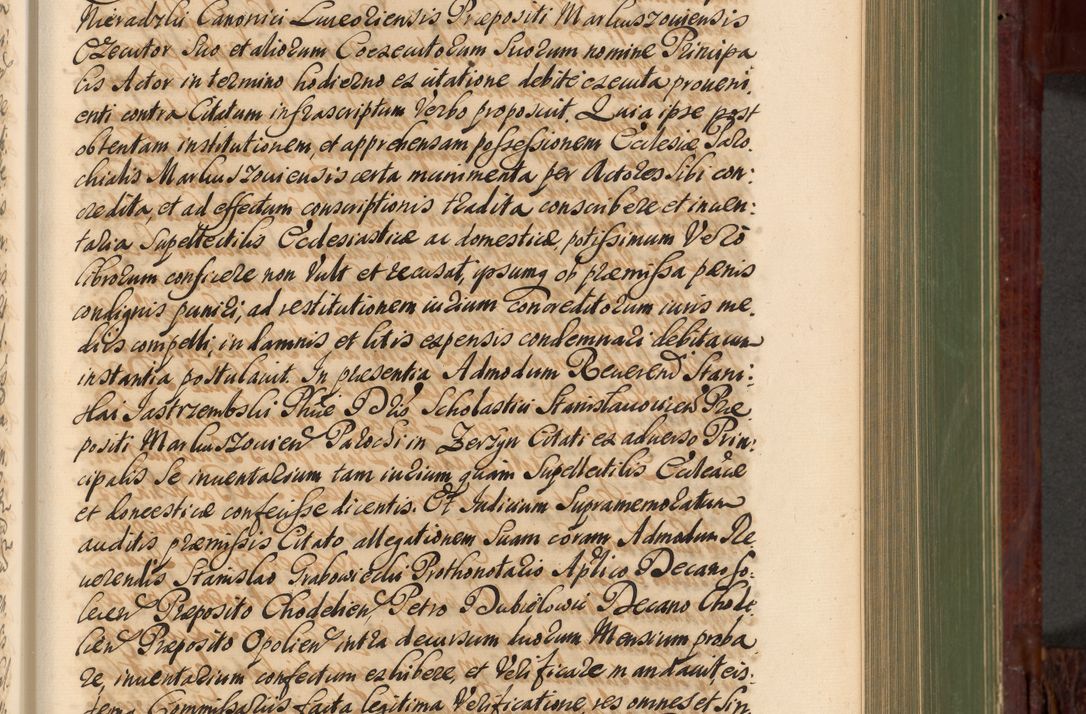 Nieradzki Canonici Luceoriensis Præpositi Markuszoviensis
Exzecutor Suo et aliorum Coexecutorum Suorum nomine Principa
lis Actor in termino hodierno ex citatione debite executa proveni,
enti contra Citatum infrascriptum Verbo proposuit. Quia ipse post
obtentam institutionem, et apprehensam possessionem Ecclesiæ Paro,
chialis Markuszoviensis certa munimenta per Actores Sibi con:
credita, et ad effectum conscriptionis tradita conscribere et inven:
taria Supellectilis Ecclesiasticæ ac domesticæ, potissimum Vero
librorum conficere non Vult et recusat, ipsumq ob præmissa pænis
condignis puniri, ad restitutionem iurium concreditorum iuris me,
diis compelli, in damnis et litis expensis condemnari debita cum
instantia postulavit. In præsentia Admodum Reverend Stani:
slai Jastrzembski Phiæ Dris Scholastici Stanislavovien Præ
positi Markuszovien Parochi in Zerzyn Citati ex adverso Prin:
cipalis Se inventarium tam iurium quam Supellectilis Eccleæ
et domesticæ confecisse dicentis. Et Iudicium Supramemoratum
auditis præmissis Citato allegationem Suam coram Admodum Re
verendis Stanislao Grabowiecki Prothonotario Aplico Decano So:
lecien Præposito Chodelien, Petro Dubielowic Decano Chode
lien Præposito Opolien intra decursum duorum Mensium proba
re, inventarium confectum exhibere, et Verificare mandavit eis:
dem Commissariis facta legitima Verificatione res omnes et Sin